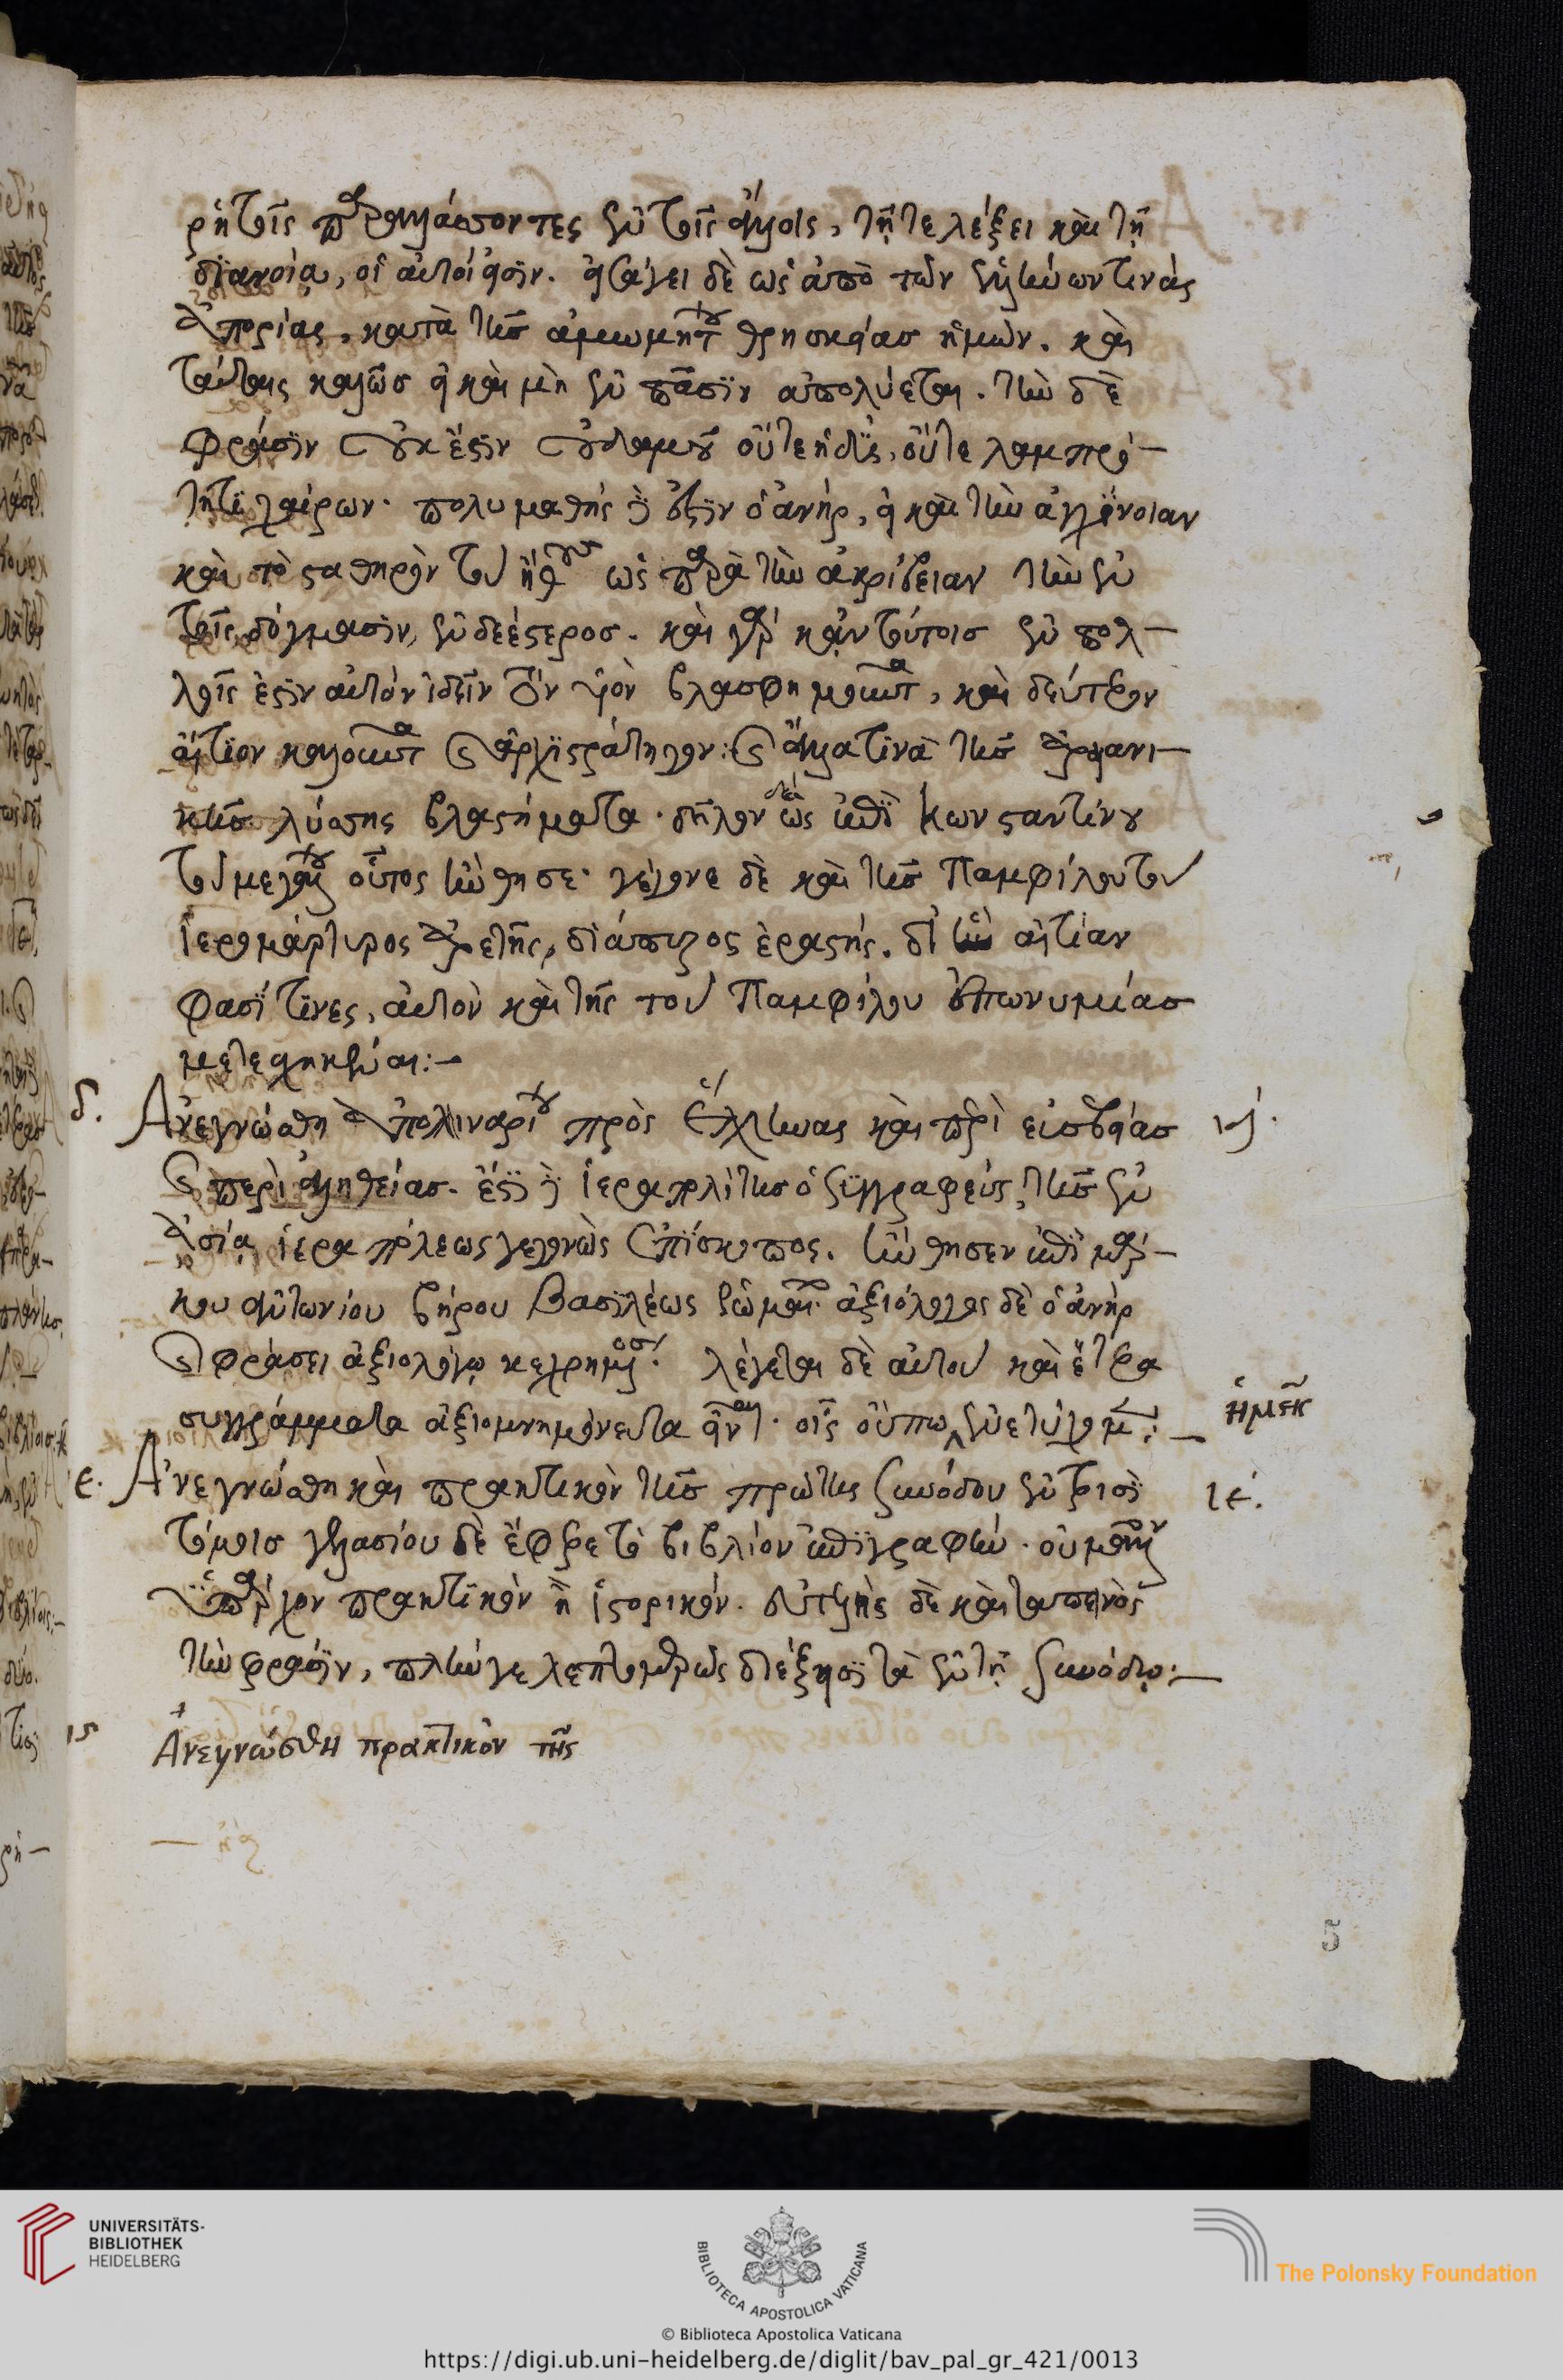 ρητοῖς παραλλάσσοντες ἐν τοῖς ἄλλοις, τῇ τε λέξει καὶ τῇ
διανοία, οἱ αὐτοί εἰσϊν. εἰσάγει δὲ ὡς ἀπὸ τῶν ἑλλήνων τινὰς
ἀπορίας, κατὰ τῆσ ἀμωμήτου θρησκείασ ἡμῶν. καὶ
ταύτας καλῶσ εἰ καὶ μὴ ἐν πᾶσϊν ἀπολύεται. τὴν δὲ
φράσϊν οὐκ ἔστϊν οὐδαμοῦ οὔτε ἡδὺς, οὔτε λαμπρό-
τητϊ χαίρων. πολυμαθὴς δέ ἐστϊν ὁ ἀνὴρ, εἰ καὶ τὴν ἀγχίνοιαν
καὶ τὸ σταθηρὸν τοῦ ἤθους ὡς παρὰ τὴν ἀκρίβειαν τὴν ἐν
τοῖς δόγμασϊν, ἐνδεέστεροσ. καὶ γὰρ κἀν τούτοισ ἐν πολ-
λοῖς ἔστϊν αὐτὸν ἰδεῖν τὸν υἱὸν βλασφημοῦντα, καὶ δεύτερον
αἴτϊον καλοῦντα καὶ ἀρχϊστράτηγον: καὶ ἄλλα τϊνὰ τῆσ ἀρειανι-
κῆσ λύσσης βλαστήματα. δῆλον δὲ ὡς ἐπὶ Κωνσταντίνου
τοῦ μεγάλου οὗτος ἤνθησε. γέγονε δὲ καὶ τῆσ Παμφίλου τοῦ
ἱερομάρτυρος ἀρετῆς, διάπυρος ἐραστής. δι' ἣν αἰτίαν
φασί τϊνες, αὐτὸν καὶ τῆς τοῦ Παμφίλου ἐπωνυμίασ
μετεσχηκέναι:-
δ. Ἀνεγνώσθη Ἀπολιναρίου πρὸς ἕλληνας καὶ περὶ εὐσεβείασ ιδ.
καὶ περὶ ἀληθείασ. ἔστϊ δὲ ἱεραπολίτησ ὁ συγγραφεὺς, τῆσ ἐν
ἀσία ἱεραπόλεως γεγονὼς ἐπίσκοπος. ἤνθησεν ἐπὶ μάρ-
κου ἀντωνίου βήρου βασϊλέως ῥωμαίων. ἀξιόλογος δὲ ὁ ἀνὴρ
καὶ φράσει ἀξιολόγω κεχρημένος. λέγεται δὲ αὐτοῦ καὶ ἕτερα
συγγράμματα ἀξιομνημόνευτα εἶναι. οἷς οὔπω ἐνετύχομεν:-
ἡμεῖς
ε. Ἀνεγνώσθη καὶ πρακτικὸν τῆσ πρώτης συνόδου ἐν τρισϊ ιε.
τόμοισ γελασίου δὲ ἔφερε τὸ βιβλίον ἐπϊγραφὴν. οὐ μᾶλλον
ὑπάρχον πρακτϊκὸν ἢ ἱστορικόν. εὐτελὴς δὲ καὶ ταπεινὸς
τὴν φράσϊν, πλήν γε λεπτομερῶς διέξεισϊ τὰ ἐν τῇ συνόδω:-
ις Ἀνεγνώσθη πρακτικὸν τῆς
5
UNIVERSITÄTS-
BIBLIOTHEK
HEIDELBERG
BIBLIOTECA APOSTOLICA VATICANA
The Polonsky Foundation
© Biblioteca Apostolica Vaticana
https://digi.ub.uni-heidelberg.de/diglit/bav_pal_gr_421/0013